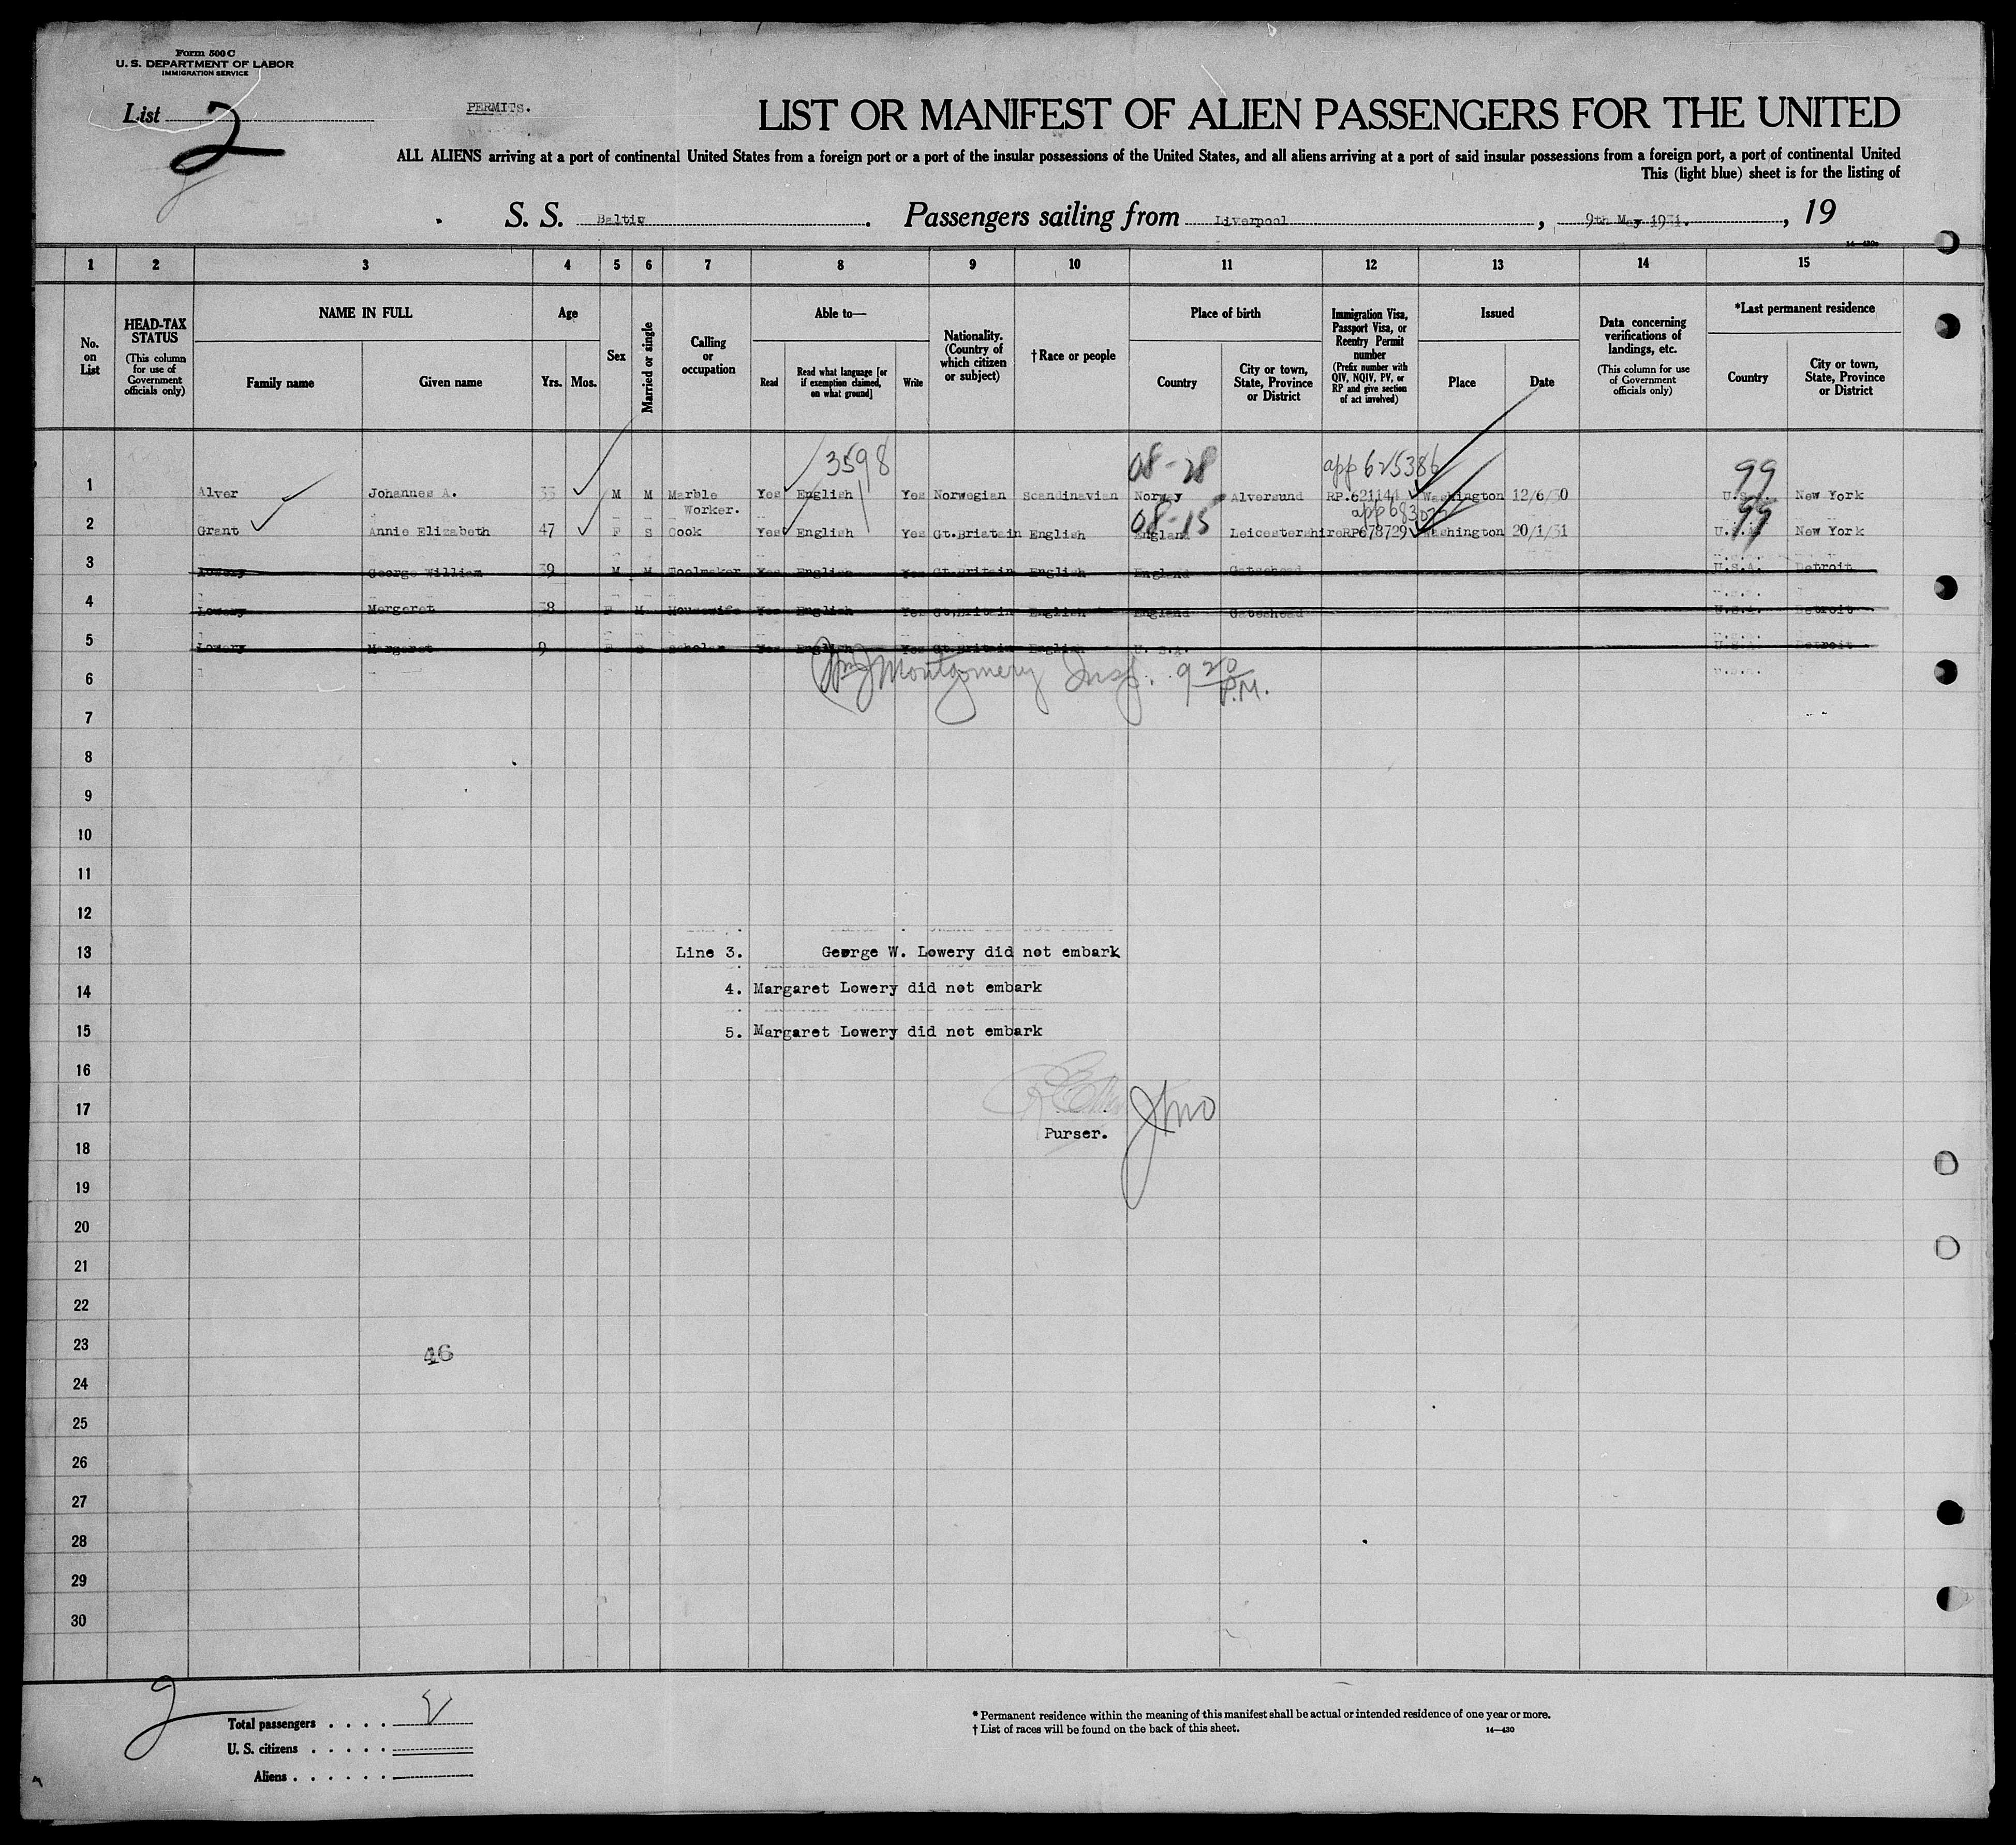 Form 500 C
U. S. DEPARTMENT OF LABOR
IMMIGRATION SERVICE
List 2
PERMITs.
LIST OR MANIFEST OF ALIEN PASSENGERS FOR THE UNITED
ALL ALIENS arriving at a port of continental United States from a foreign port or a port of the insular possessions of the United States, and all aliens arriving at a port of said insular possessions from a foreign port, a port of continental United
This (light blue) sheet is for the listing of
S. S. Baltic. Passengers sailing from Liverpool, 9th May 1931., 19
14—430
1 2 3 4 5 6 7 8 9 10 11 12 13 14 15
No. on List
HEAD-TAX STATUS (This column for use of Government officials only)
NAME IN FULL Family name Given name
Age Yrs. Mos.
Sex
Married or single
Calling or occupation
Able to— Read Read what language [or if exemption claimed, on what ground] Write
Nationality. (Country of which citizen or subject)
†Race or people
Place of birth Country City or town, State, Province or District
Immigration Visa, Passport Visa, or Reentry Permit number (Prefix number with QIV, NQIV, PV, or RP and give section of act involved)
Issued Place Date
Data concerning verifications of landings, etc. (This column for use of Government officials only)
*Last permanent residence Country City or town, State, Province or District
3598 08-28 app 625386 99
1 Alver Johannes A. 33 M M Marble Yes English Yes Norwegian Scandinavian Norway Alversund RP.621144 Washington 12/6/30 U.S.A. New York
Worker.
08-15 99
2 Grant Annie Elizabeth 47 F S Cook Yes English Yes Gt.Briatain English England Leicestershire RP678729 Washington 20/1/31 U.S.A. New York
3 Lowery George William 39 M M Toolmaker Yes English Yes Gt.Britain English England Gateshead U.S.A. Detroit
4 Lowery Margaret 38 F M Housewife Yes English Yes Gt.Britain English England Gateshead U.S.A. Detroit
5 Lowery Margaret 9 F S Scholar Yes English Yes Gt.Britain English U. S.A. U.S.A. Detroit
6 Montgomery Insp. 9 20 P.M.
7
8
9
10
11
12
13 Line 3. George W. Lowery did not embark
14 4. Margaret Lowery did not embark
15 5. Margaret Lowery did not embark
16
17
Purser.
18
19
20
21
22
23 46
24
25
26
27
28
29
30
2
Total passengers . . . . 2
U. S. citizens . . . . .
Aliens . . . . . .
* Permanent residence within the meaning of this manifest shall be actual or intended residence of one year or more.
† List of races will be found on the back of this sheet. 14—430